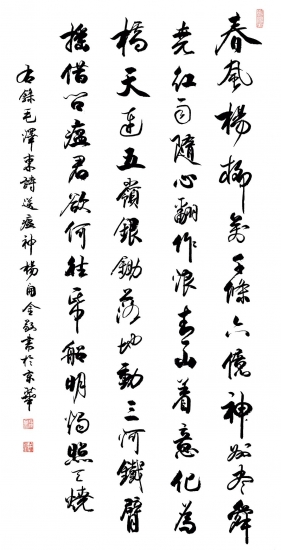 春風楊柳萬千條六億神州盡舜
堯紅雨隨心翻作浪青山着意化為
橋天連五嶺銀鋤落地動三河鐵臂
搖借問瘟君欲何往紙船明燭照天燒
右錄毛澤東詩送瘟神楊自全敬書於京華